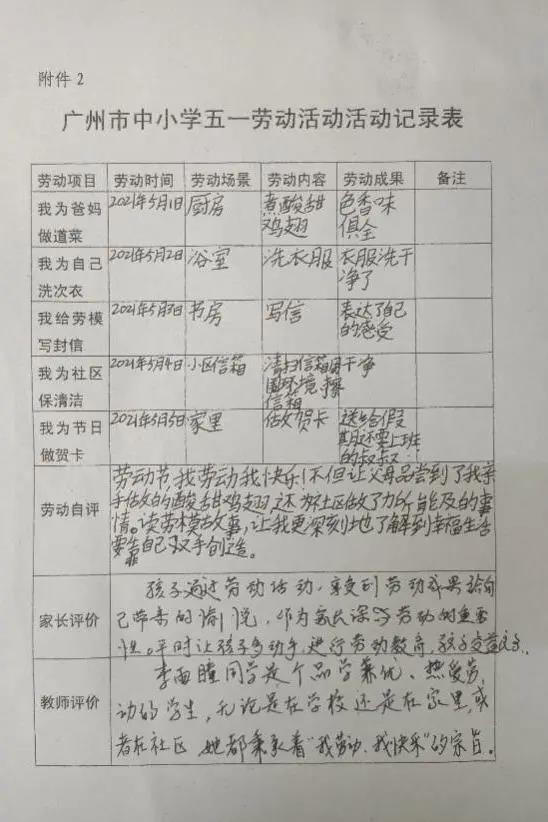 附件2
广州市中小学五一劳动活动活动记录表
劳动项目 劳动时间 劳动场景 劳动内容 劳动成果 备注
我为爸妈 2021年5月1日 厨房 煮酸甜 色香味
做道菜 鸡翅 俱全
我为自己 2021年5月2日 浴室 洗衣服 衣服洗干
洗次衣 净了
我给劳模 2021年5月3日 书房 写信 表达了自己
写封信 的感受
我为社区 2021年5月4日 小区信箱 清扫信箱周 干净
保清洁 围环境,擦
信箱
我为节日 2021年5月5日 家里 做贺卡 送给假
做贺卡 期还要上班
的叔叔
劳动节,我劳动我快乐!不但让父母品尝到了我亲
手做的酸甜鸡翅,还为社区做了力所能及的事
劳动自评
情。读劳模故事,让我更深刻地了解到幸福生活
要靠自己双手创造。
孩子通过劳动活动,享受到劳动成果给自
家长评价
己带来的愉悦,作为家长深知劳动的重要
性。平时让孩子多动手,进行劳动教育,孩子受益
李雨瞳同学是个品学兼优、热爱劳
教师评价
动的学生,无论是在学校还是在家里,或
者在社区 她都秉承着“我劳动、我快乐”的宗旨。